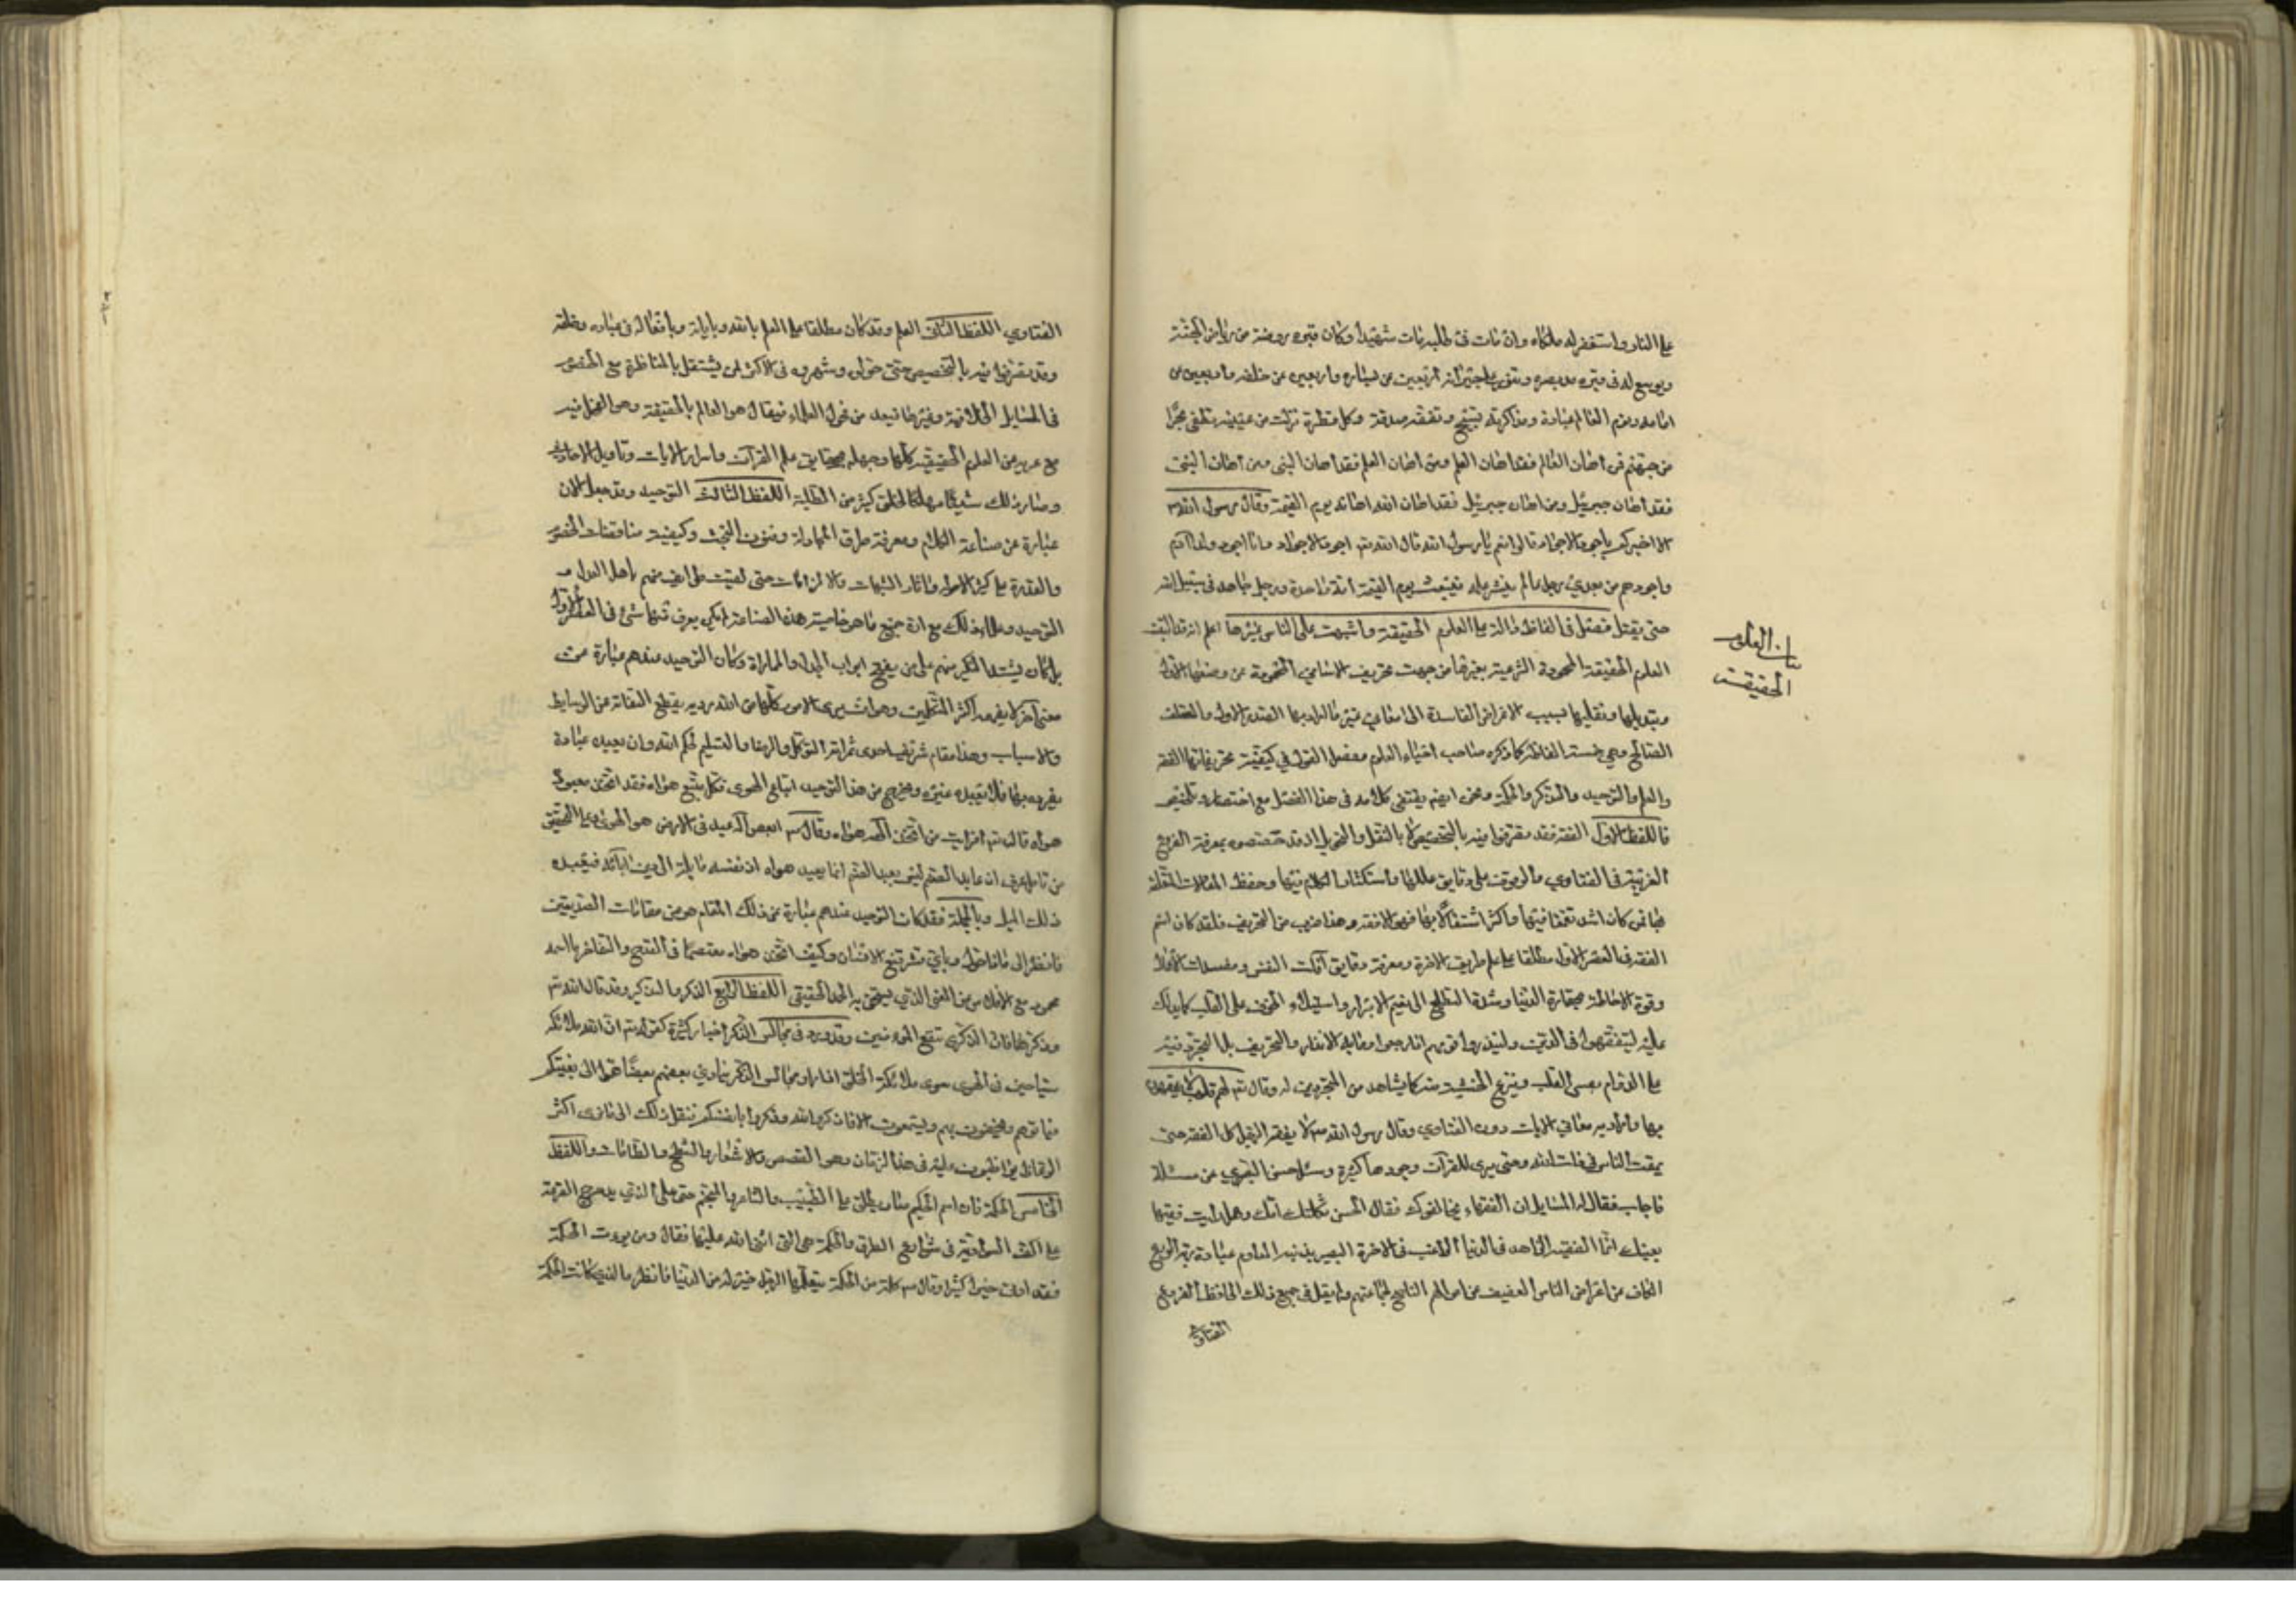 على النار واستغفر له ملكاه وان مات في طلبه مات شهيدا وكان قبره روضة من رياض الجنة
ويوسع له في قبره مد بصره وينور على جيرانه اربعين عن يساره واربعين عن خلفه واربعين عن
امامه ونوم العالم عبادة ومذاكرته تسبيح ونفقته صدقة وكل قطرة نزلت من عينيه تطفى بحرا
من جهنم فمن اهان العالم فقد اهان العلم ومن اهان العلم فقد اهان النبي ومن اهان النبي
فقد اهان جبرئيل ومن اهان جبرئيل فقد اهان الله اهانه الله يوم القيمة وقال رسول الله ص
الا اخبركم باجود الاجواد قالوا نعم يا رسول الله قال الله تع اجود الاجواد وانا اجود ولد آدم
واجودهم من بعدي رجل عالم ينشر علمه فيبعث يوم القيمة امة واحدة ورجل جاهد في سبيل الله
حتى يقتل فصل في الفاظ دالة على العلوم الحقيقة واشبهت على الناس بغيرها اعلم انه قد التبت
العلوم الحقيقة المحمودة الشرعية بغيرها من جهت تحريف الاسامي المحمودة عن وضعها الاول
وتبديلها ونقليها بسبب الاغراض الفاسدة الى معاني غير ما اراد بها القرن الاول والسلف
الصالح وهي خمسة الفاظ كما ذكره صاحب احياء العلوم مفصل القول في كيفية تحريفاتها الفقه
والعلم والتوحيد والتذكر والحكمة ونحن ايضا نقتفي كلامه في هذا الفصل مع اختصار وتلخيص
فاللفظ الاول الفقه فقد تصرفوا فيه بالتخصيص لا بالنقل والتحويل اذ قد خصصوه بمعرفة الفروع
الغريبة في الفتاوي والوقوف على دقايق عللها واستكثار الكلام فيها وحفظ المقالات المتعلقة
بها فمن كان اشد تعمقا فيها واكثر اشتغالا بها فهو الافقه وهذا ضرب من التحريف فلقد كان اسم
الفقه في العصر الاول مطلقا على علم طريق الاخرة ومعرفة دقايق آفات النفس ومفسدات الاعمال
وقوة الاحاطة بحقارة الدنيا وشدة التطلع الى نعيم الابرار واستيلاء الخوف على القلب كما يدلك
عليه ليتفقهوا في الدين ولينذروا قومهم اذا رجعوا وما به الانذار والتخويف بل التجرد فيه
على الدوام يقسى القلب وينزع الخشية منه كما يشاهد من المتجردين له وقال تع لهم قلوب لا يفقهون
بها واراد به معاني الايات دون الفتاوي وقال رسول الله ص لا يفقه الرجل كل الفقه حتى
يمقت الناس في ذات الله وحتى يرى للقرآن وجوها كثيرة وسئل حسن البصري عن مسئلة
فاجاب فقال له السايل ان الفقهاء يخالفونك فقال الحسن ثكلتك امك وهل رايت فقيها
بعينك انما الفقيه الزاهد في الدنيا الراغب في الاخرة البصير بذنبه المداوم عبادة ربه الورع
الكاف عن اعراض الناس العفيف عن اموالهم الناصح لجماعتهم ولم يقل في جميع ذلك الحافظ لفروع
الفتاوي
بيان العلوم
الحقيقة
الفتاوي اللفظ الثاني العلم وقد كان مطلقا على العلم بالله وباياته وبافعاله في عباده وخلقه
وقد تصرفوا فيه بالتخصيص حتى حولوه وشهروه في الاكثر لمن يشتغل بالمناظرة مع الخصوم
في المسايل الخلافية وغيرها فيعد من فحول العلماء فيقال هو العالم بالحقيقة وهو الفحل فيه
مع عريه من العلوم الحقيقة كلها وجهله بحقايق علم القرآن واسرار الايات وتاويل الاحاديث
وصار ذلك سببا مهلكا لخلق كثير من الطلبة اللفظ الثالث التوحيد وقد جعل الان
عبارة عن صناعة الكلام ومعرفة طرق المجادلة وفنون البحث وكيفية مناقضات الخصوم
والقدرة على كثير الاسولة واثارة الشبهات والالزامات حتى لقبت طوايف منهم باهل العدل و
التوحيد وعلماء ذلك مع ان جميع ما هو خاصية هذه الصناعة لم يكن يعرف منها شئ في العصر الاول
بل كان يشتد النكير منهم على من يفتح ابواب الجدل والمماراة وكان التوحيد عندهم عبارة عن
معنى آخر لا يفهمه اكثر المتكلمين وهو ان يرى الامور كلها من الله رؤية يقطع التفاته عن الوسايط
والاسباب وهذا مقام شريف احدى ثمراته التوكل والرضا والتسليم لحكم الله وان يعبده عبادة
يفرده بها فلا يعبد غيره ويخرج من هذا التوحيد اتباع الهوى فكل متبع هواه فقد اتخذ معبوده
هواه قال الله تع افرايت من اتخذ الهه هواه وقال ص ابغض اله عبد في الارض هو الهوى وعلى التحقيق
من تامل عرف ان عابد الصنم ليس يعبد الصنم انما يعبد هواه اذ نفسه مايلة الى دين آبائه فيتبعه
ذلك الميل وبالجملة فقد كان التوحيد عندهم عبارة عن ذلك المقام هو من مقامات الصديقين
فانظر الى ماذا حول وباي قشر قنع الانسان وكيف اتخذ هواه معتصما في التمدح والتفاخر بما اسمه
محمود مع الافلاس عن المعنى الذي يستحق به الحمد الحقيقي اللفظ الرابع الذكر والتذكير وقد قال الله تع
وذكر فان الذكرى تنفع المؤمنين وقد ورد في مجالس الذكر اخبار كثيرة كقوله تع ان لله ملائكة
سياحين في الهوى سوى ملائكة الخلق اذا راوا مجالس الذكر ينادي بعضهم بعضا هلموا الى بغيتكم
فياتونهم ويحفون بهم ويستمعون الا فاذكروا الله وذكروا بانفسكم فنقل ذلك الى ما ترى اكثر
الوعاظ يواظبون عليه في هذا الزمان وهو القصص والاشعار والشطح والطامات واللفظ
الخامس الحكمة فان اسم الحكيم صار يطلق على الطبيب والشاعر والمنجم حتى على الذي يدحرج القرعة
على اكف السوادية في شوارع الطرق والحكمة هي التي اثنى الله عليها فقال ومن يؤت الحكمة
فقد اوتي خيرا كثيرا وقال ص كلمة من الحكمة يتعلمها الرجل خير له من الدنيا فانظر ما الذي كانت الحكمة